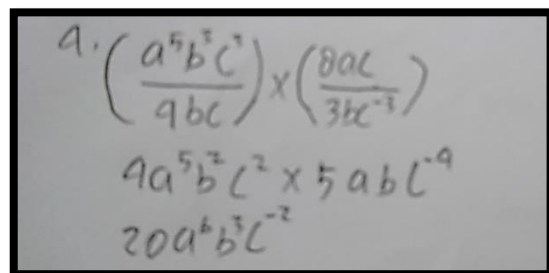 a. (a⁵b³c³/9bc) × (8ac/3bc⁻³)
4a⁵b²c² × 5abc⁻⁴
20a⁶b³c⁻²